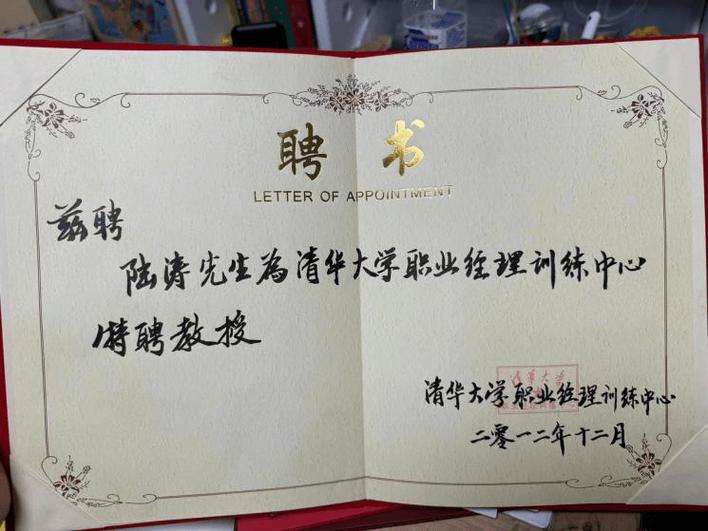 聘 书
LETTER OF APPOINTMENT
兹聘
陆涛先生為清华大学职业经理训练中心
特聘教授
清华大学
清华大学职业经理训练中心
二零一二年十二月